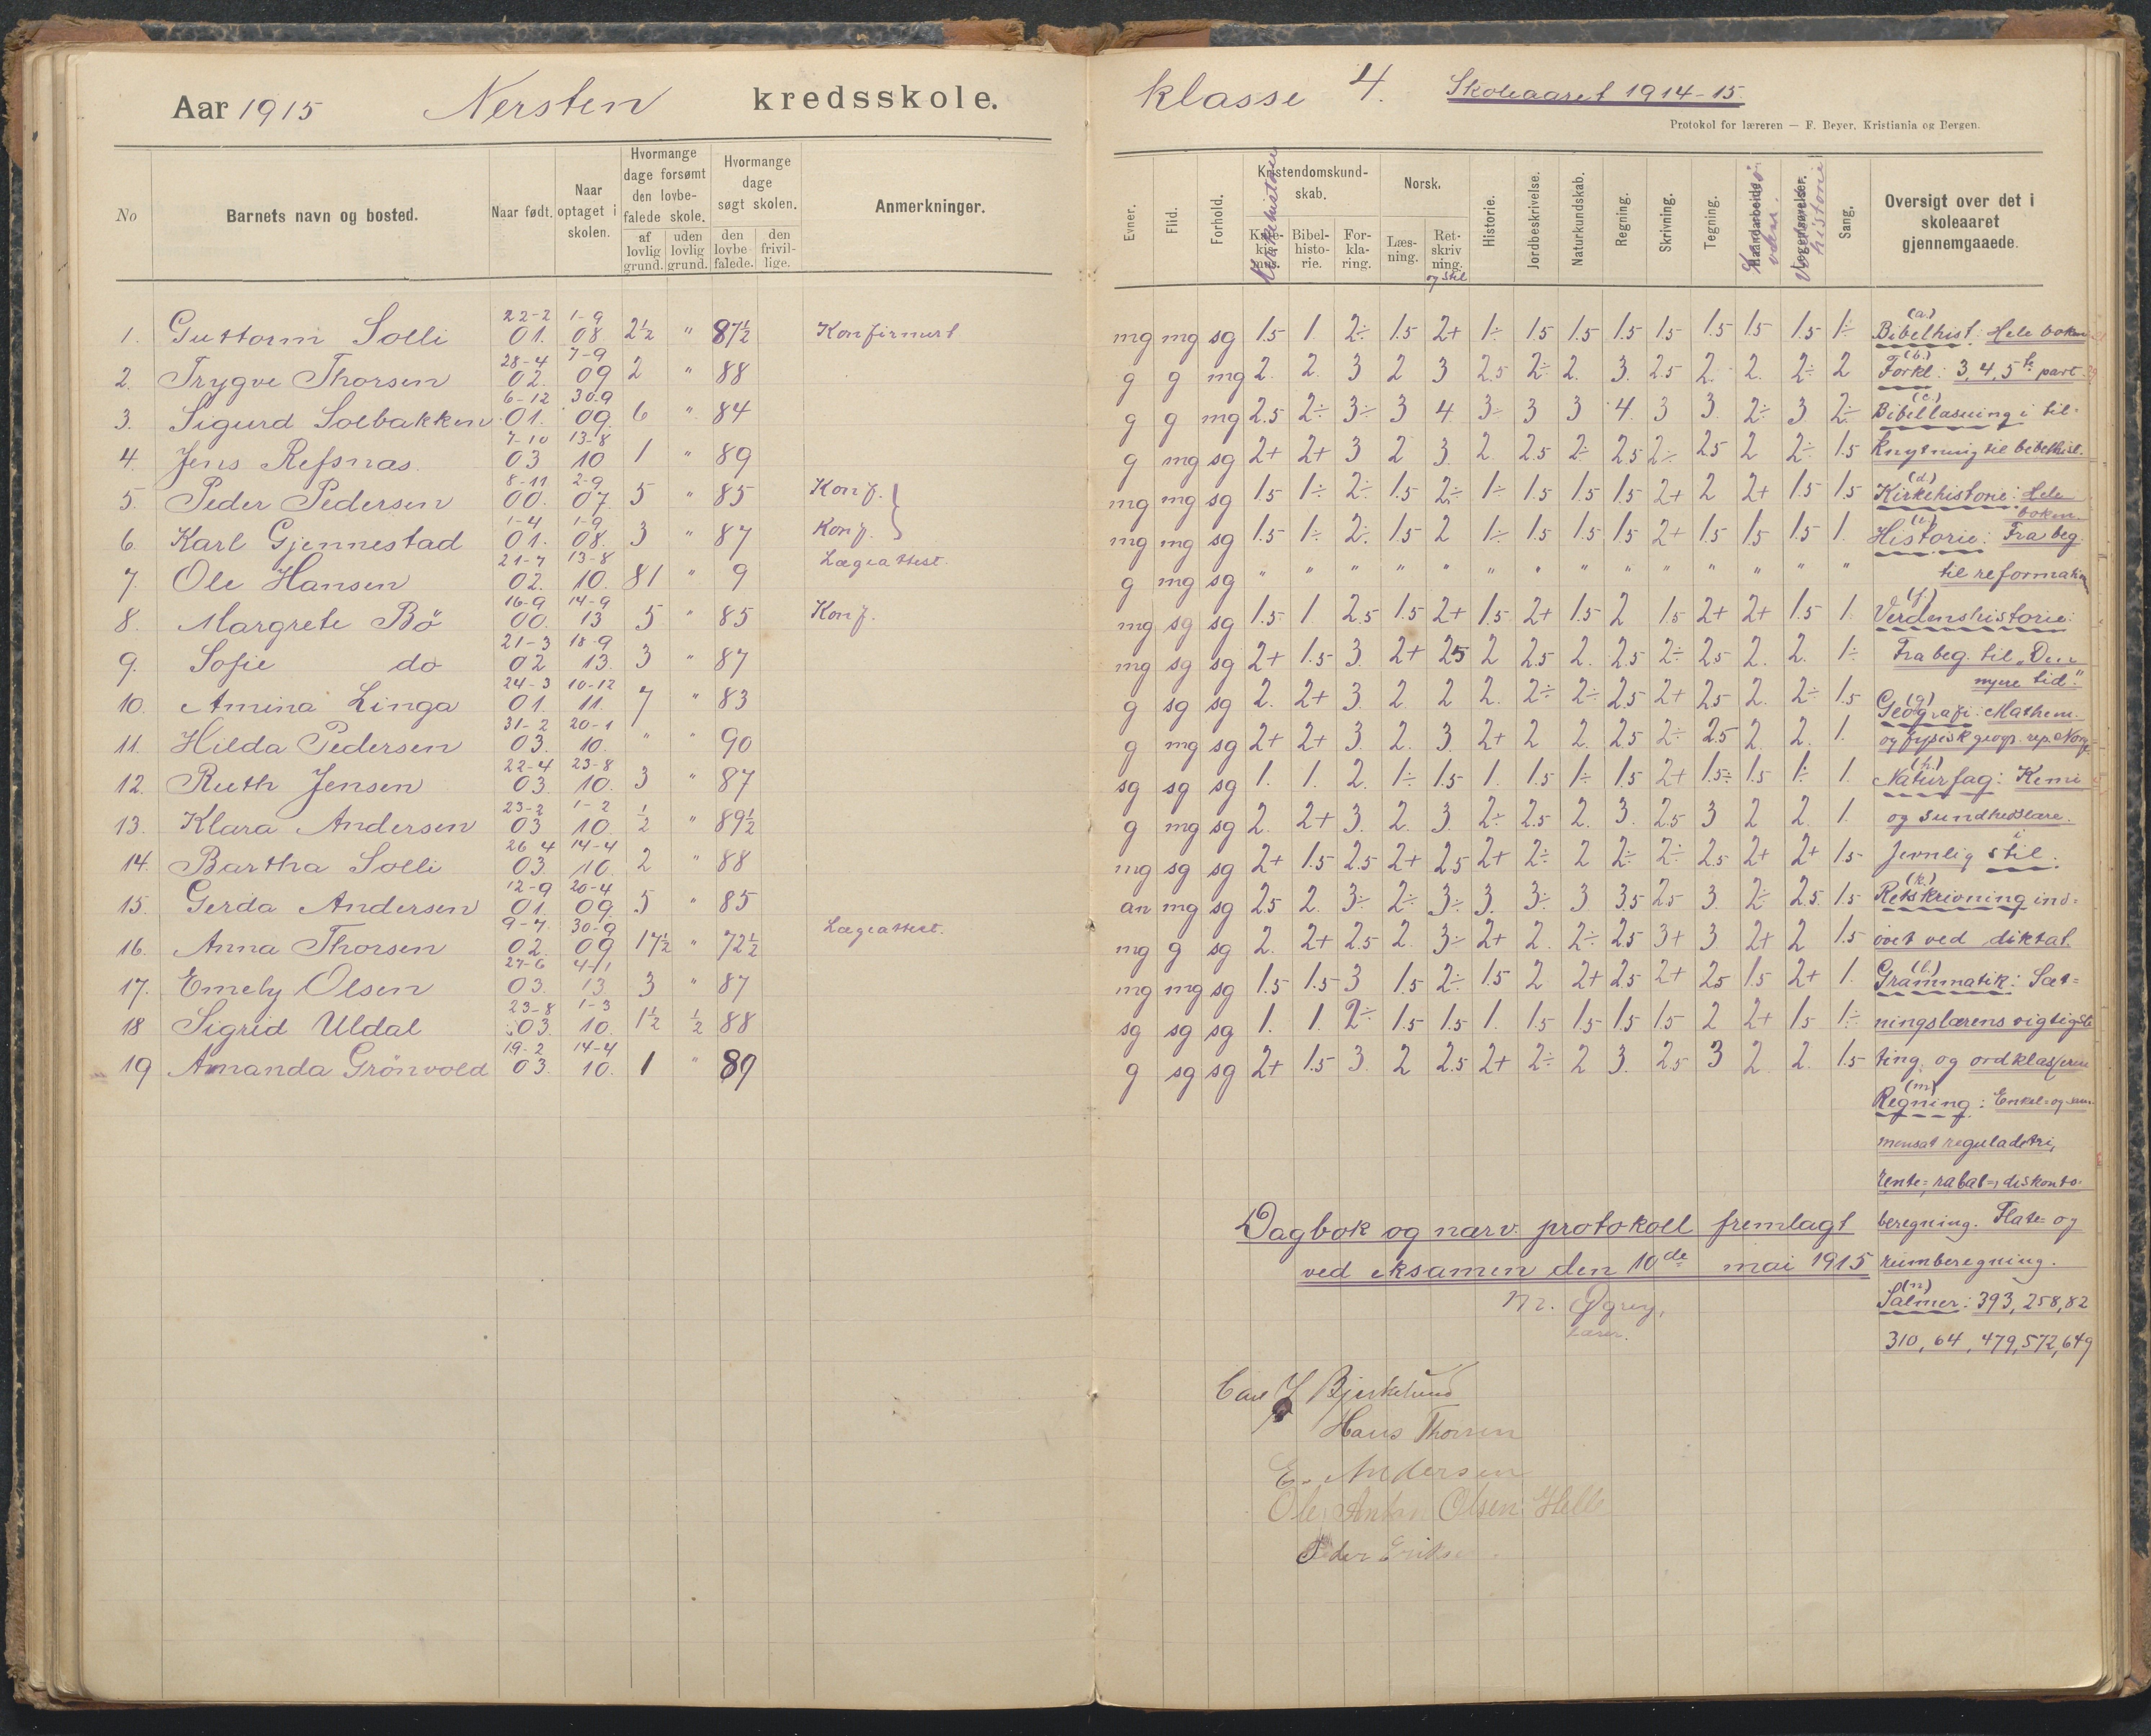 Aar 1915 Nersten kredsskole.
No Barnets navn og bosted. Naar født. Naar optaget i skolen. Hvormange dage forsømt den lovbefalede skole. af lovlig grund. uden lovlig grund. Hvormange dage søgt skolen. den lovbefalede. den frivillige. Anmerkninger.
1. Guttorm Solli 22-2 01. 1-9 08 2½ " 87½ Konfirmert
2. Trygve Thorsen 28-4 02. 7-9 09 2 " 88
3. Sigurd Solbakken 6-12 01. 30-9 09. 6 " 84
4. Jens Refsnæs. 7-10 03 13-8 10 1 " 89
5. Peder Pedersen 8-11 00. 2-9 07. 5 " 85 Konf.
6. Karl Gjennestad 1-4 01. 1-9 08. 3 " 87 Konf.
7. Ole Hansen 21-7 02. 13-8 10. 81 " 9 Lægeattest.
8. Margrete Bö 16-9 00. 14-9 13 5 " 85 Konf.
9. Sofie do 21-3 02 18-9 13. 3 " 87
10. Amina Linga 24-3 01. 10-12 11. 7 " 83
11. Hilda Pedersen 31-2 03. 20-1 10. " " 90
12. Ruth Jensen 22-4 03. 23-8 10. 3 " 87
13. Klara Andersen 23-2 03 1-2 10. ½ " 89½
14. Bartha Solli 26-4 03. 14-4 10. 2 " 88
15. Gerda Andersen 12-9 01. 20-4 09. 5 " 85
16. Anna Thorsen 9-7. 02. 30-9 09 17½ " 72½ Lægeattest.
17. Emely Olsen 27-6 03. 4-11 13 3 " 87
18 Sigrid Uldal 23-8 03. 1-3 10. 1½ ½ 88
19 Amanda Grönvold 19-2 03. 14-4 10. 1 " 89
klasse 4. Skoleaaret 1914-15.
Protokol for læreren — F. Beyer, Kristiania og Bergen.
Evner. Flid. Forhold. Kristendomskundskab. Katekismus. Kirkehistorie Bibelhistorie. Forklaring. Norsk. Læsning. Retskrivning. og stil Historie. Jordbeskrivelse. Naturkundskab. Regning. Skrivning. Tegning. Haandarbeide. Legemsøvelser. Verdenshistorie Sang. Oversigt over det i skoleaaret gjennemgaaede.
mg mg sg 1.5 1. 2÷ 1.5 2+ 1÷ 1.5 1.5 1.5 1.5 1.5 1.5 1.5 1÷
g g mg 2. 2. 3 2 3 2.5 2÷ 2. 3. 2.5 2. 2. 2÷ 2
g g mg 2.5 2÷ 3÷ 3 4 3÷ 3 3 4. 3 3. 2÷ 3 2÷
g mg sg 2+ 2+ 3 2 3. 2. 2.5 2÷ 2.5 2÷ 2.5 2 2÷ 1.5
mg mg sg 1.5 1÷ 2÷ 1.5 2÷ 1÷ 1.5 1.5 1.5 2+ 2 2+ 1.5 1.5
mg mg sg 1.5 1÷ 2÷ 1.5 2 1÷ 1.5 1.5 1.5 2+ 1.5 1.5 1.5 1.
g mg sg " " " " " " " " " " " " " "
mg sg sg 1.5 1. 2.5 1.5 2+ 1.5 2+ 1.5 2 1.5 2+ 2+ 1.5 1.
mg sg sg 2+ 1.5 3. 2+ 25 2 2.5 2. 2.5 2÷ 2.5 2. 2. 1÷
g sg sg 2. 2+ 3. 2. 2 2. 2÷ 2÷ 2.5 2+ 2.5 2. 2÷ 1.5
g mg sg 2+ 2+ 3. 2. 3. 2+ 2 2. 2.5 2÷ 2.5 2 2. 1.
sg sg sg 1. 1. 2. 1÷ 1.5 1. 1.5 1÷ 1.5 2+ 1.5÷ 1.5 1÷ 1.
g mg sg 2. 2+ 3. 2. 3. 2÷ 2.5 2. 3. 2.5 3 2 2. 1.
mg sg sg 2+ 1.5 2.5 2+ 2.5 2+ 2÷ 2 2÷ 2÷ 2.5 2+ 2+ 1.5
an mg sg 2.5 2. 3÷ 2÷ 3÷ 3. 3÷ 3 3.5 2.5 3 2÷ 2.5 1.5
mg g sg 2. 2+ 2.5 2. 3÷ 2+ 2. 2÷ 2.5 3+ 3 2+ 2 1.5
mg mg sg 1.5 1.5 3 1.5 2÷ 1.5 2 2+ 2.5 2+ 2.5 1.5 2+ 1.
sg sg sg 1. 1. 2÷ 1.5 1.5 1. 1.5 1.5 1.5 1.5 2 2+ 1.5 1÷
g sg sg 2+ 1.5 3. 2 2.5 2+ 2÷ 2 3. 2.5 3 2. 2. 1.5
(a.)
Bibelhist: Hele boken
(b.)
Forkl: 3, 4, 5te part
(c.)
Bibellæsning i til-
knytning til bibelhist.
(d.)
Kirkehistorie: Hele
boken.
(e.)
Historie: Fra beg.
til reformation
(f.)
Verdenshistorie:
Fra beg. til "Den
nyere tid."
(g)
Geografi: Mathem.
og fysisk geogr. rep. Norge
(h.)
Naturfag: Kemi
og sundhedslære.
i
Jevnlig stil.
(k.)
Retskrivning ind-
övet ved diktat.
(l.)
Grammatik: Sæt-
ningslærens vigtigste
ting og ordklasserne
(m)
Regning: Enkel- og sam-
mensat reguladetri,
rente-, rabat-, diskonto-
beregning. Flate- og
rumberegning.
(n)
Salmer: 393, 258, 82
310, 64, 479, 572, 649
Dagbok og nærv. protokoll fremlagt
ved eksamen den 10de mai 1915
lærer.
Carl J Bjerkelund
Hans Thorsen
E. Andersen
Ole Anton Olsen Helle
Peder Eriksen